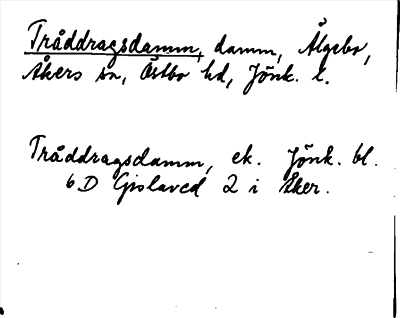 Tråddragsdamm, damm, Älgebo,
Åkers sn, Östbo hd, Jönk. l.
Tråddragsdamm, ek. Jönk. bl.
6D Gislaved 2 i Åker.